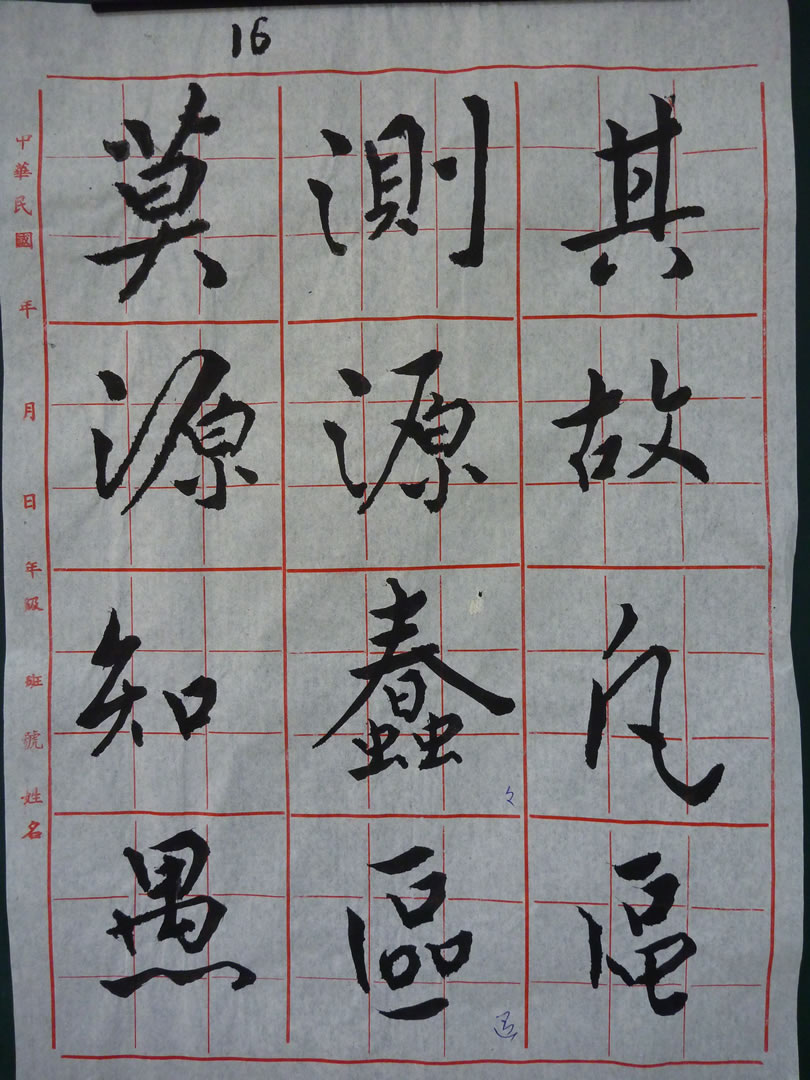 16
莫測其
源源故
知蠢凡
々
愚區區
中華民國 年 月 日 年級 班 號 姓名